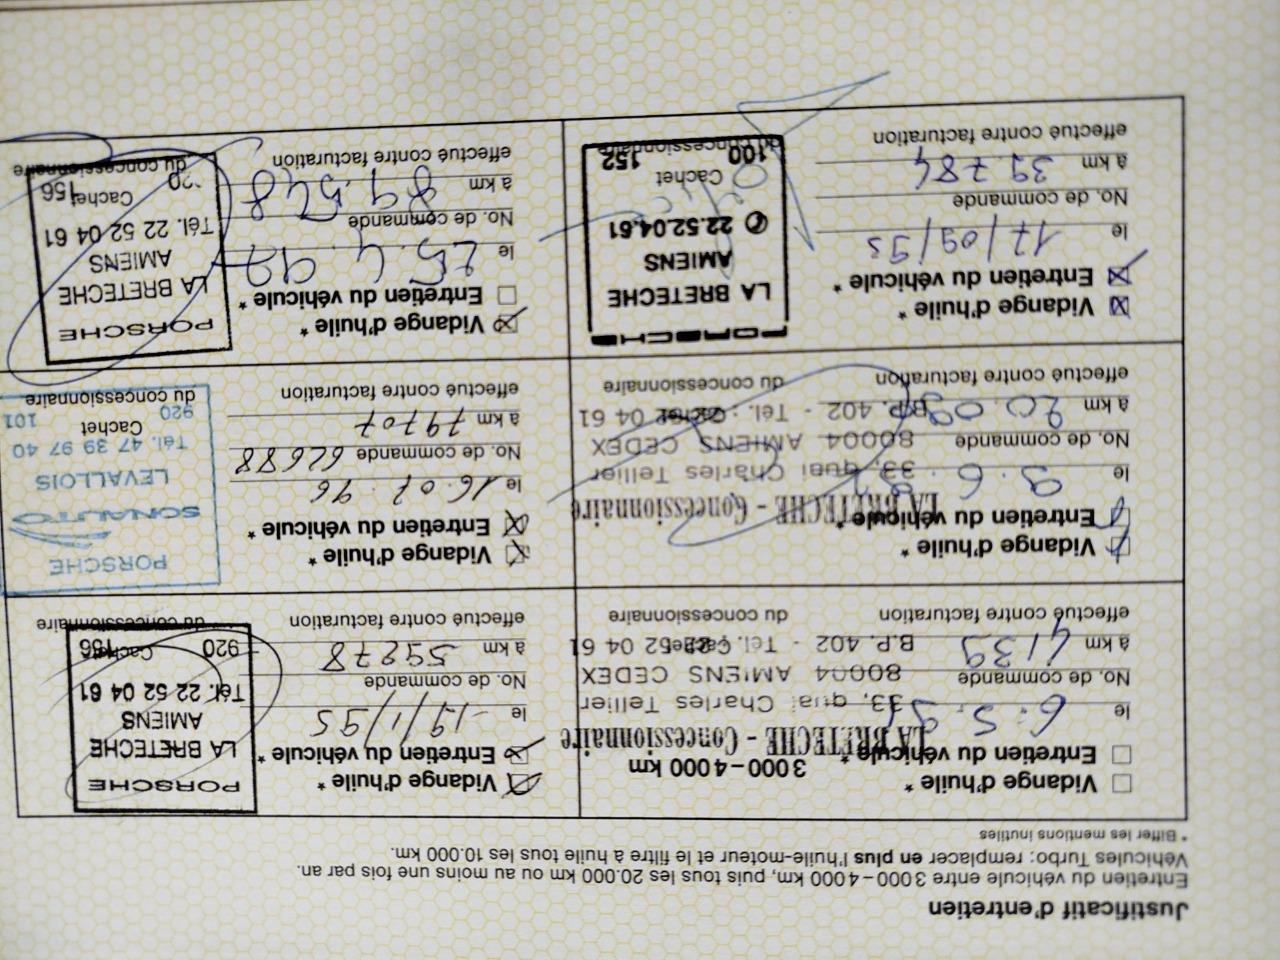 Justificatif d'entretien
Entretien du véhicule entre 3 000 – 4 000 km, puis tous les 20.000 km ou au moins une fois par an.
Véhicules Turbo: remplacer en plus l'huile-moteur et le filtre à huile tous les 10.000 km.
* Biffer les mentions inutiles
Vidange d'huile *
3 000 – 4 000 km
Entretien du véhicule *
LA BRETECHE - Concessionnaire
le 6.5.9
33, quai Charles Tellier
No. de commande
80004 AMIENS CEDEX
à km 4139
B.P. 402 - Tél. : 22 52 04 61
Cachet
effectué contre facturation
du concessionnaire
Vidange d'huile *
Entretien du véhicule *
LA BRETECHE - Concessionnaire
le 9.6.
33, quai Charles Tellier
No. de commande
80004 AMIENS CEDEX
à km
B.P. 402 - Tél. : 22 52 04 61
Cachet
effectué contre facturation
du concessionnaire
Vidange d'huile *
Entretien du véhicule *
le 17/09/93
No. de commande
à km 39.784
effectué contre facturation
PORSCHE
LA BRETECHE
AMIENS
✆ 22.52.04.61
Cachet
100 152
du concessionnaire
Vidange d'huile *
Entretien du véhicule *
le 19/11/95
No. de commande
à km 59278
effectué contre facturation
PORSCHE
LA BRETECHE
AMIENS
Tél. 22 52 04 61
920 Cachet 156
du concessionnaire
Vidange d'huile *
Entretien du véhicule *
le 16.07.96
No. de commande 62688
à km 79707
effectué contre facturation
PORSCHE
SONAUTO
LEVALLOIS
Tél. 47 39 97 40
Cachet
920 101
du concessionnaire
Vidange d'huile *
Entretien du véhicule *
le 25.4.97
No. de commande
à km 89.548
effectué contre facturation
PORSCHE
LA BRETECHE
AMIENS
Tél. 22 52 04 61
Cachet 156
du concessionnaire